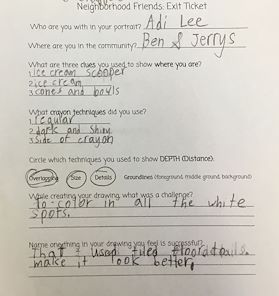 Neighborhood Friends: Exit Ticket
Who are you with in your portrait? Adi Lee
Where are you in the community? Ben & Jerrys
What are three clues you used to show where you are?
1. ice cream scooper
2. ice cream
3. cones and bowls
What crayon techniques did you use?
1. regular
2. dark and shiny
3. Side of crayon
Circle which techniques you used to show DEPTH (Distance):
Overlapping Size Details Groundlines (foreground, middle ground, background)
While creating your drawing, what was a challenge?
To color in all the white
spots.
Name one thing in your drawing you feel is successful?
That I used tiled floor details.
make it look better.